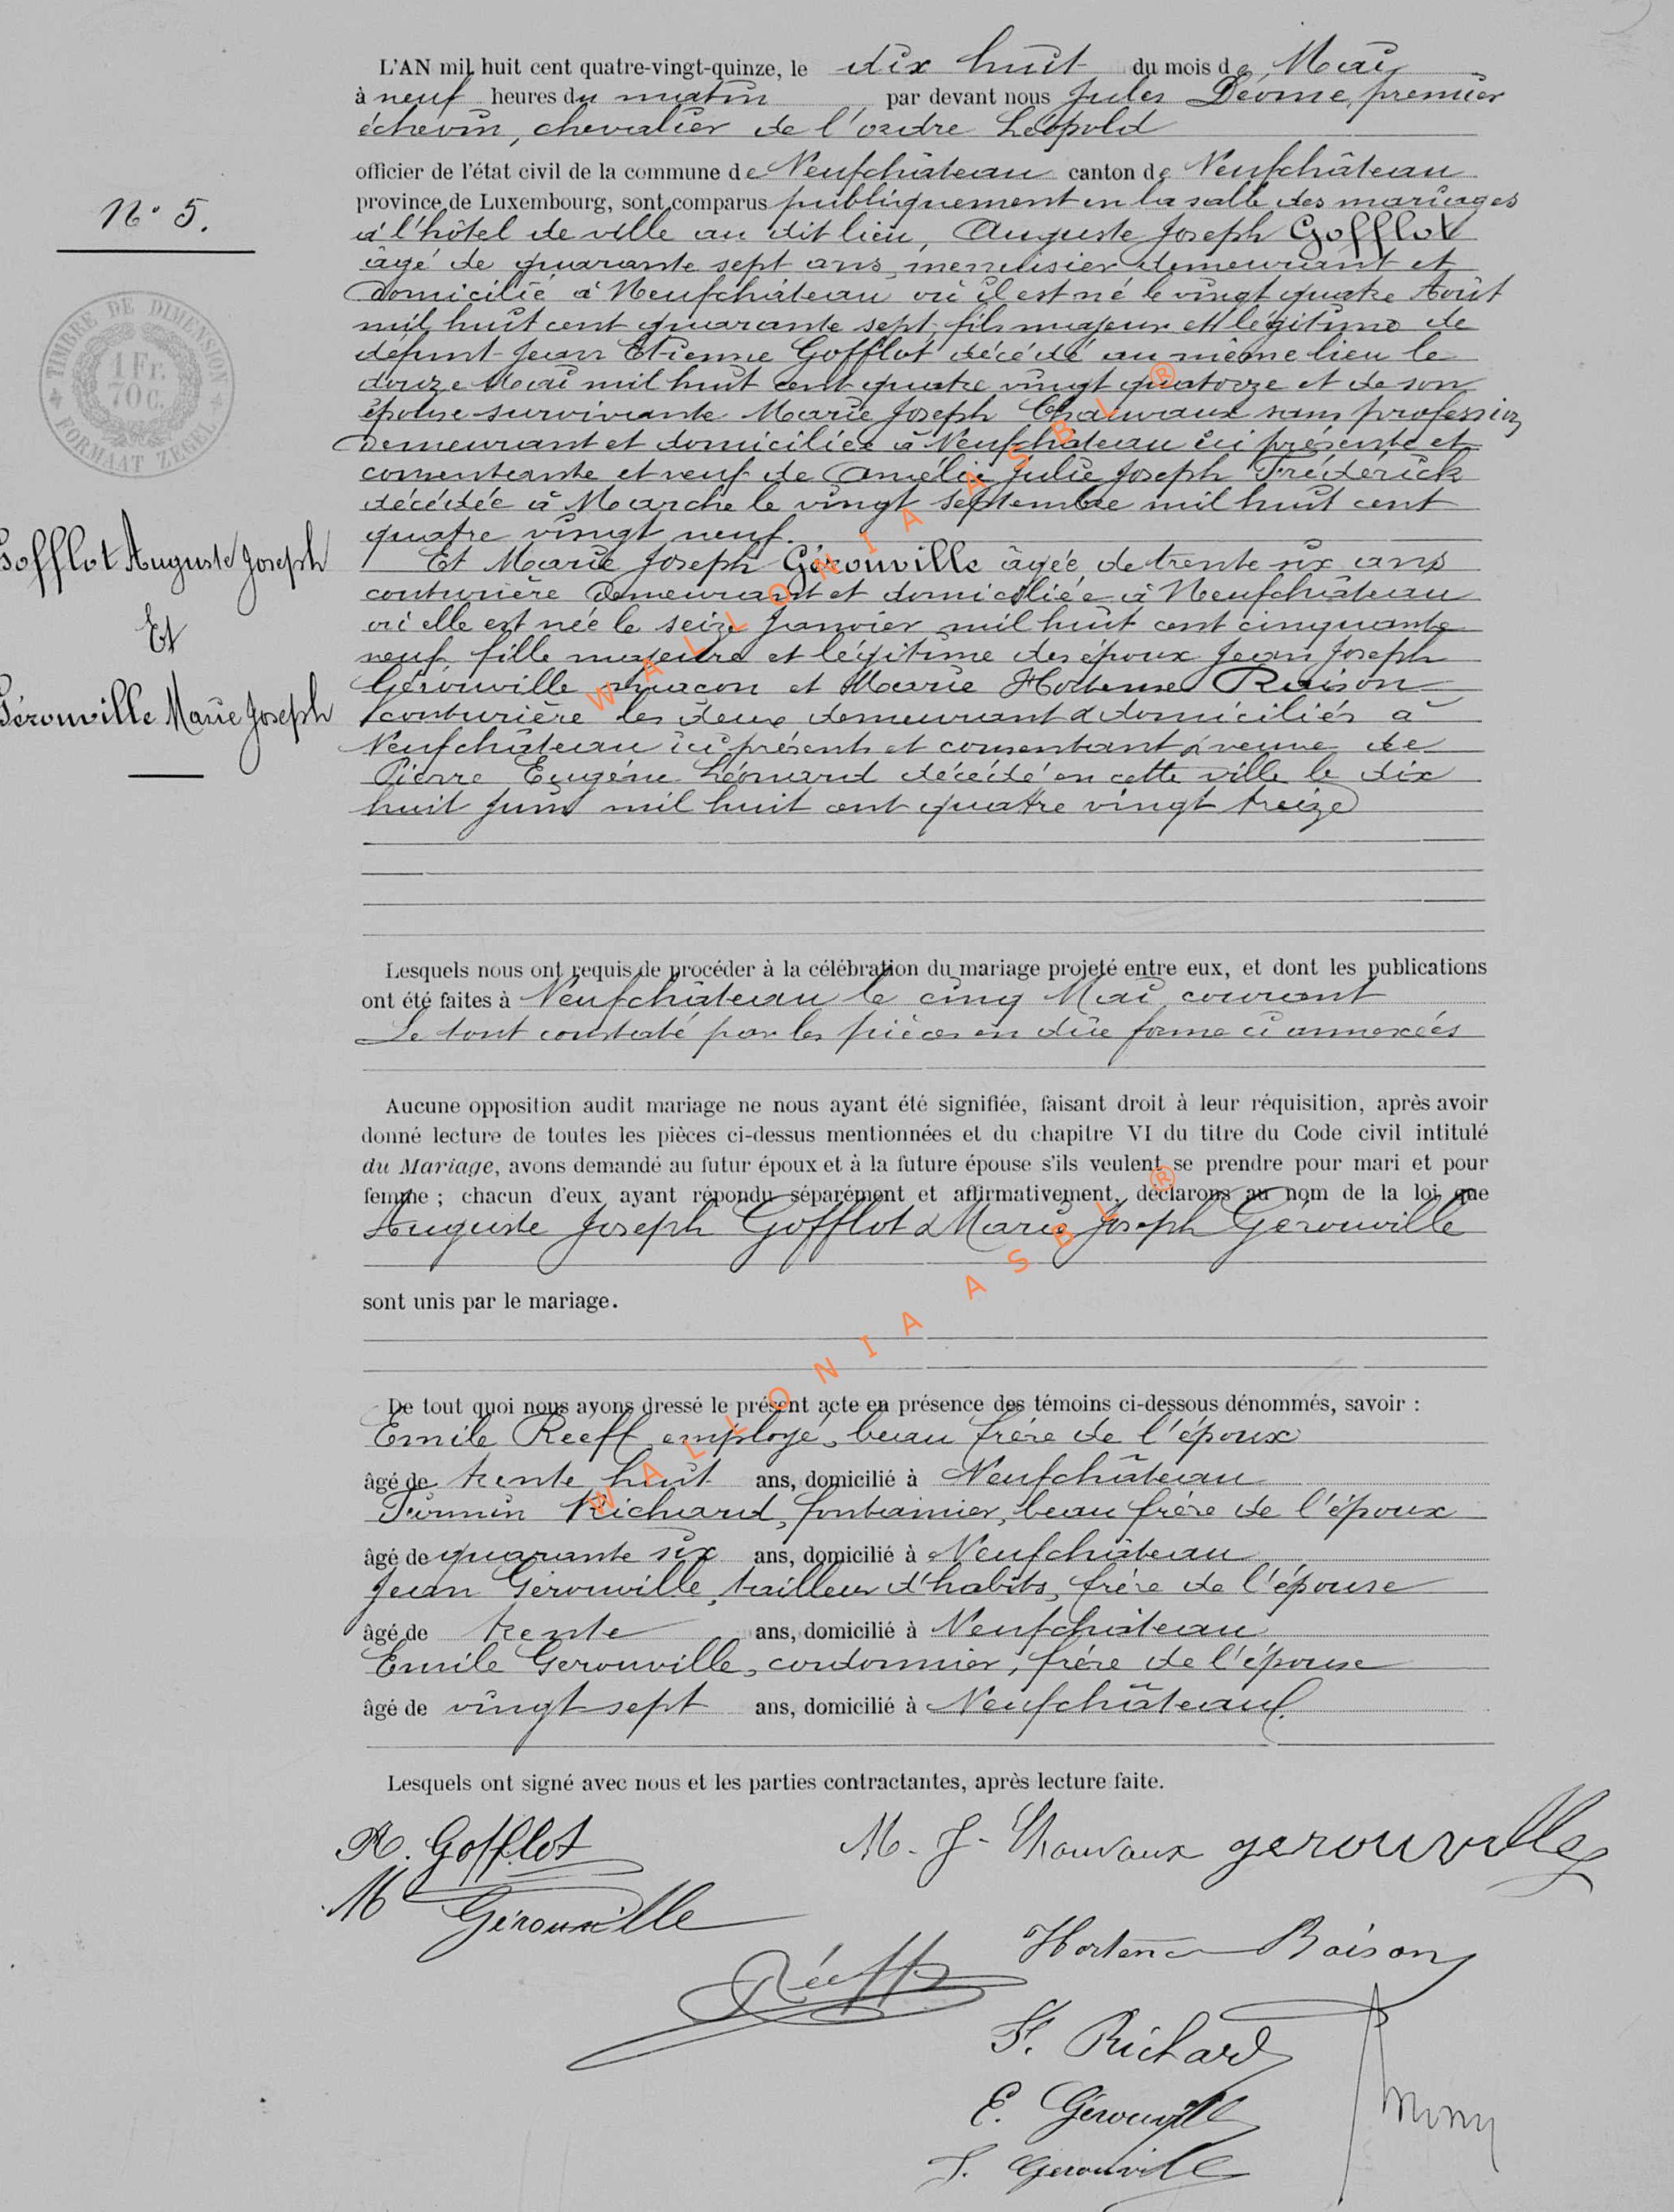 L'AN mil huit cent quatre-vingt-quinze, le dix huit du mois de Mai
à neuf heures du matin par devant nous Jules Déome, premier
échevin, chevalier de l'ordre Léopold
officier de l'état civil de la commune de Neufchâteau canton de Neufchâteau
province de Luxembourg, sont comparus publiquement en la salle des mariages
à l'hôtel de ville au dit lieu, Auguste Joseph Gofflot
âgé de quarante sept ans, menuisier demeurant et
domicilié à Neufchâteau où il est né le vingt quatre Août
mil huit cent quarante sept, fils majeur et légitime de
défunt Jean Etienne Gofflot décédé au même lieu le
douze Mai mil huit cent quatre vingt quatorze et de son
épouse survivante Marie Joseph Chauvaux sans profession
demeurant et domiciliée à Neufchâteau ici présente et
consentante et veuf de Amélie Julie Joseph Fréderick
décédée à Marche le vingt septembre mil huit cent
quatre vingt neuf.
Et Marie Joseph Gérouville âgée de trente six ans
couturière demeurant et domiciliée à Neufchâteau
où elle est née le seize Janvier mil huit cent cinquante
neuf, fille majeure et légitime des époux Jean Joseph
Gérouville maçon et Marie Hortense Raison
couturière les deux demeurant & domiciliés à
Neufchâteau ici présents et consentant, veuve de
Pierre Eugène Léonard décédé en cette ville le dix
huit Juin mil huit cent quatre vingt treize
N° 5.
TIMBRE DE DIMENSION
1 Fr.
70 C.
FORMAAT ZEGEL
Gofflot Auguste Joseph
Et
Gérouville Marie Joseph
Lesquels nous ont requis de procéder à la célébration du mariage projeté entre eux, et dont les publications
ont été faites à Neufchâteau le cinq Mai courant
Le tout constaté par les pièces en due forme ci annexées
Aucune opposition audit mariage ne nous ayant été signifiée, faisant droit à leur réquisition, après avoir
donné lecture de toutes les pièces ci-dessus mentionnées et du chapitre VI du titre du Code civil intitulé
du Mariage, avons demandé au futur époux et à la future épouse s'ils veulent se prendre pour mari et pour
femme ; chacun d'eux ayant répondu séparément et affirmativement, déclarons au nom de la loi que
Auguste Joseph Gofflot & Marie Joseph Gérouville
sont unis par le mariage.
De tout quoi nous avons dressé le présent acte en présence des témoins ci-dessous dénommés, savoir :
Emile Reeff employé, beau frère de l'époux
âgé de trente huit ans, domicilié à Neufchâteau
Firmin Richard, fontainier, beau frère de l'époux
âgé de quarante six ans, domicilié à Neufchâteau
Jean Gérouville, tailleur d'habits, frère de l'épouse
âgé de trente ans, domicilié à Neufchâteau
Emile Gerouville, cordonnier, frère de l'épouse
âgé de vingt sept ans, domicilié à Neufchâteau
Lesquels ont signé avec nous et les parties contractantes, après lecture faite.
A. Gofflot
M. J. Chauvaux gerouville
M Gérouville
Hortence Raison
Réeff
F. Richard
E. Gérouville
J. Gerouville
WALLONIA ASBL ®
WALLONIA ASBL ®